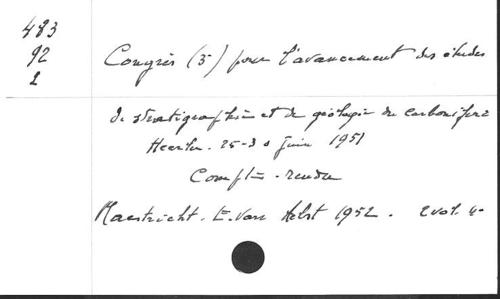 483
92
2
Congrès (3) pour l'avancement des études
de stratigraphie et de géologie du carbonifère
Heerlen. 25-30 Juin 1951
Compte-rendu
Maestricht. E. van Aelst 1952. 2 vol. 4°